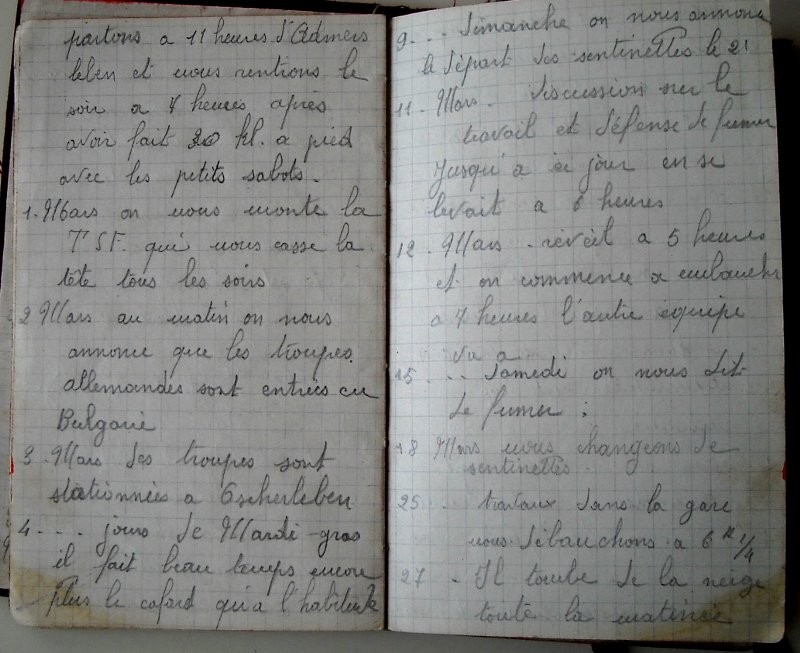 partons a 11 heures d'Admers
leben et nous rentrons le
soir a 7 heures après
avoir fait 30 kl. a pied
avec les petits sabots.
1. Mars on nous monte la
T S F. qui nous casse la
tête tous les soirs
2 Mars au matin on nous
annonce que les troupes
allemandes sont entrées en
Bulgarie
3. Mars des troupes sont
stationnées a Escherleben
4 - ... jours de Mardi-gras
il fait beau temps encore
plus le cafard qu'a l'habitude
9. .. dimanche on nous annonce
le départ des sentinelles le 21
11. Mars. discussion sur le
travail et défense de fumer
Jusqu'a ce jour on se
levait a 6 heures
12. Mars. réveil a 5 heures
et on commence a embaucher
a 7 heures l'autre équipe
va a
15. .. Samedi on nous dit
de fumer ;
18 Mars nous changeons de
sentinelles.
25 .. travaux dans la gare
nous débauchons a 6 H 1/4
27 . Il tombe de la neige
toute la matinée